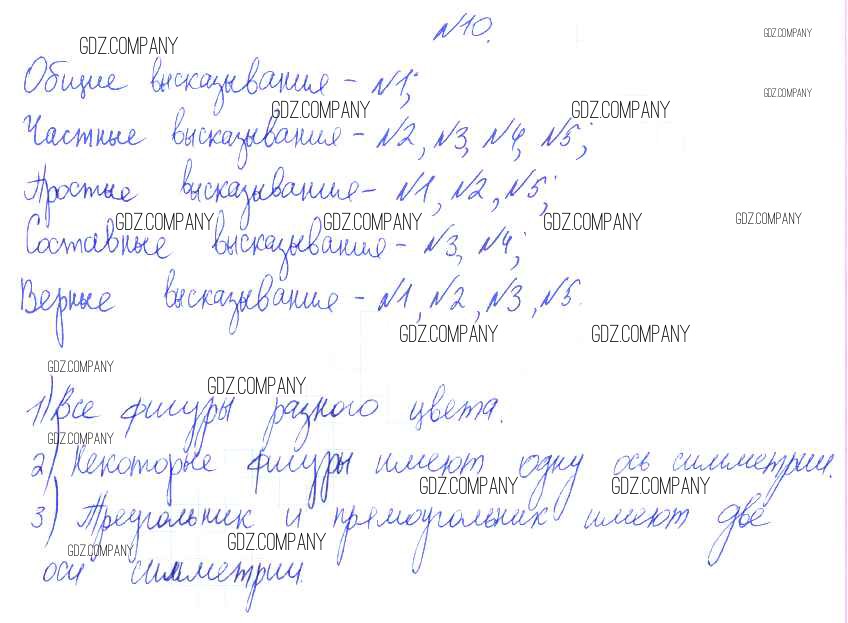 №10.
GDZ.COMPANY
GDZ.COMPANY
Общие высказывания - №1;
GDZ.COMPANY
GDZ.COMPANY
GDZ.COMPANY
Частные высказывания - №2, №3, №4, №5;
Простые высказывания - №1, №2, №5;
GDZ.COMPANY
GDZ.COMPANY
GDZ.COMPANY
GDZ.COMPANY
Составные высказывания - №3, №4;
Верные высказывания - №1, №2, №3, №5.
GDZ.COMPANY
GDZ.COMPANY
GDZ.COMPANY
GDZ.COMPANY
1) Все фигуры разного цвета.
GDZ.COMPANY
2) Некоторые фигуры имеют одну ось симметрии.
GDZ.COMPANY
GDZ.COMPANY
3) Треугольник и прямоугольник имеют две
GDZ.COMPANY
GDZ.COMPANY
оси симметрии.